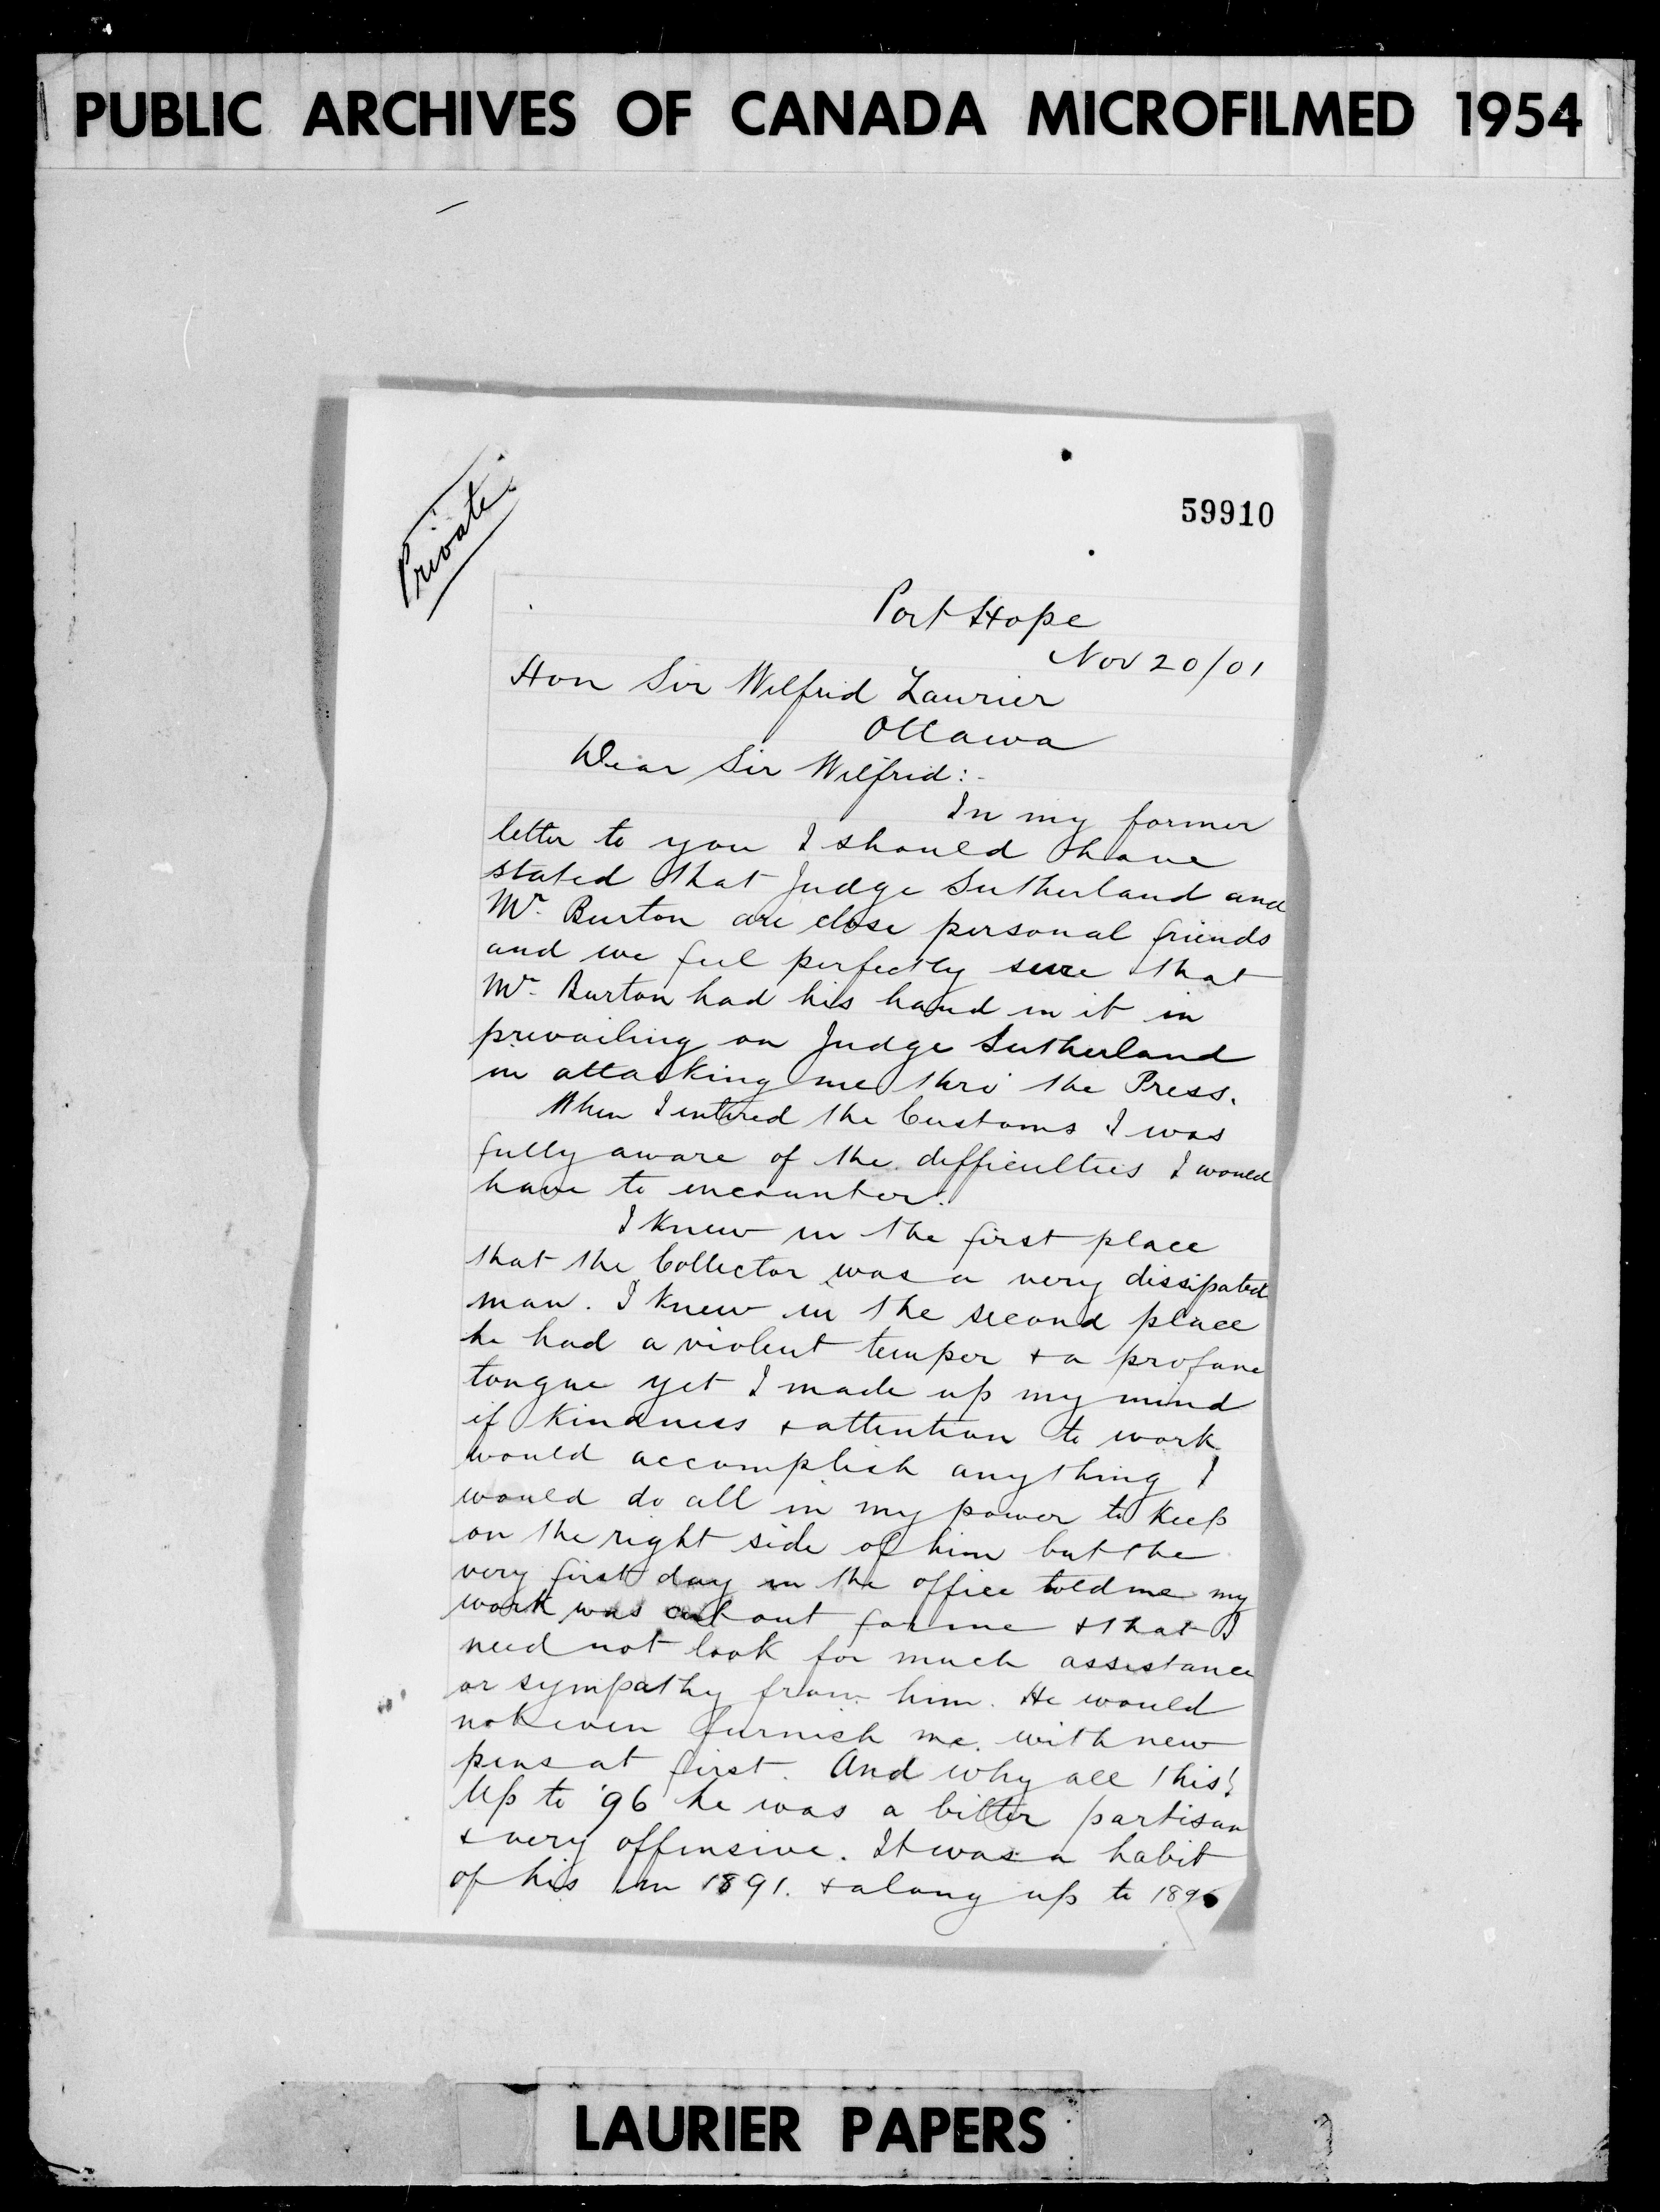 PUBLIC ARCHIVES OF CANADA MICROFILMED 1954
Private.
59910
Port Hope
Nov 20/01
Hon Sir Wilfrid Laurier
Ottawa
Dear Sir Wilfrid:-
In my former
letter to you I should have
stated that Judge Sutherland and
Mr. Burton are close personal friends
and we feel perfectly sure that
Mr. Burton had his hand in it in
prevailing on Judge Sutherland
in attacking me thro' the Press.
When I entered the Customs I was
fully aware of the difficulties I would
have to encounter.
I knew in the first place
that the Collector was a very dissipated
man. I knew in the second place
he had a violent temper + a profane
tongue yet I made up my mind
if kindness + attention to work
would accomplish anything I
would do all in my power to keep
on the right side of him but the
very first day in the office told me my
work was cut out for me + that I
need not look for much assistance
or sympathy from him. He would
not even furnish me with new
pens at first. And why all this?
Up to '96 he was a bitter partisan
+ very offensive. It was a habit
of his in 1891. + along up to 1896
LAURIER PAPERS